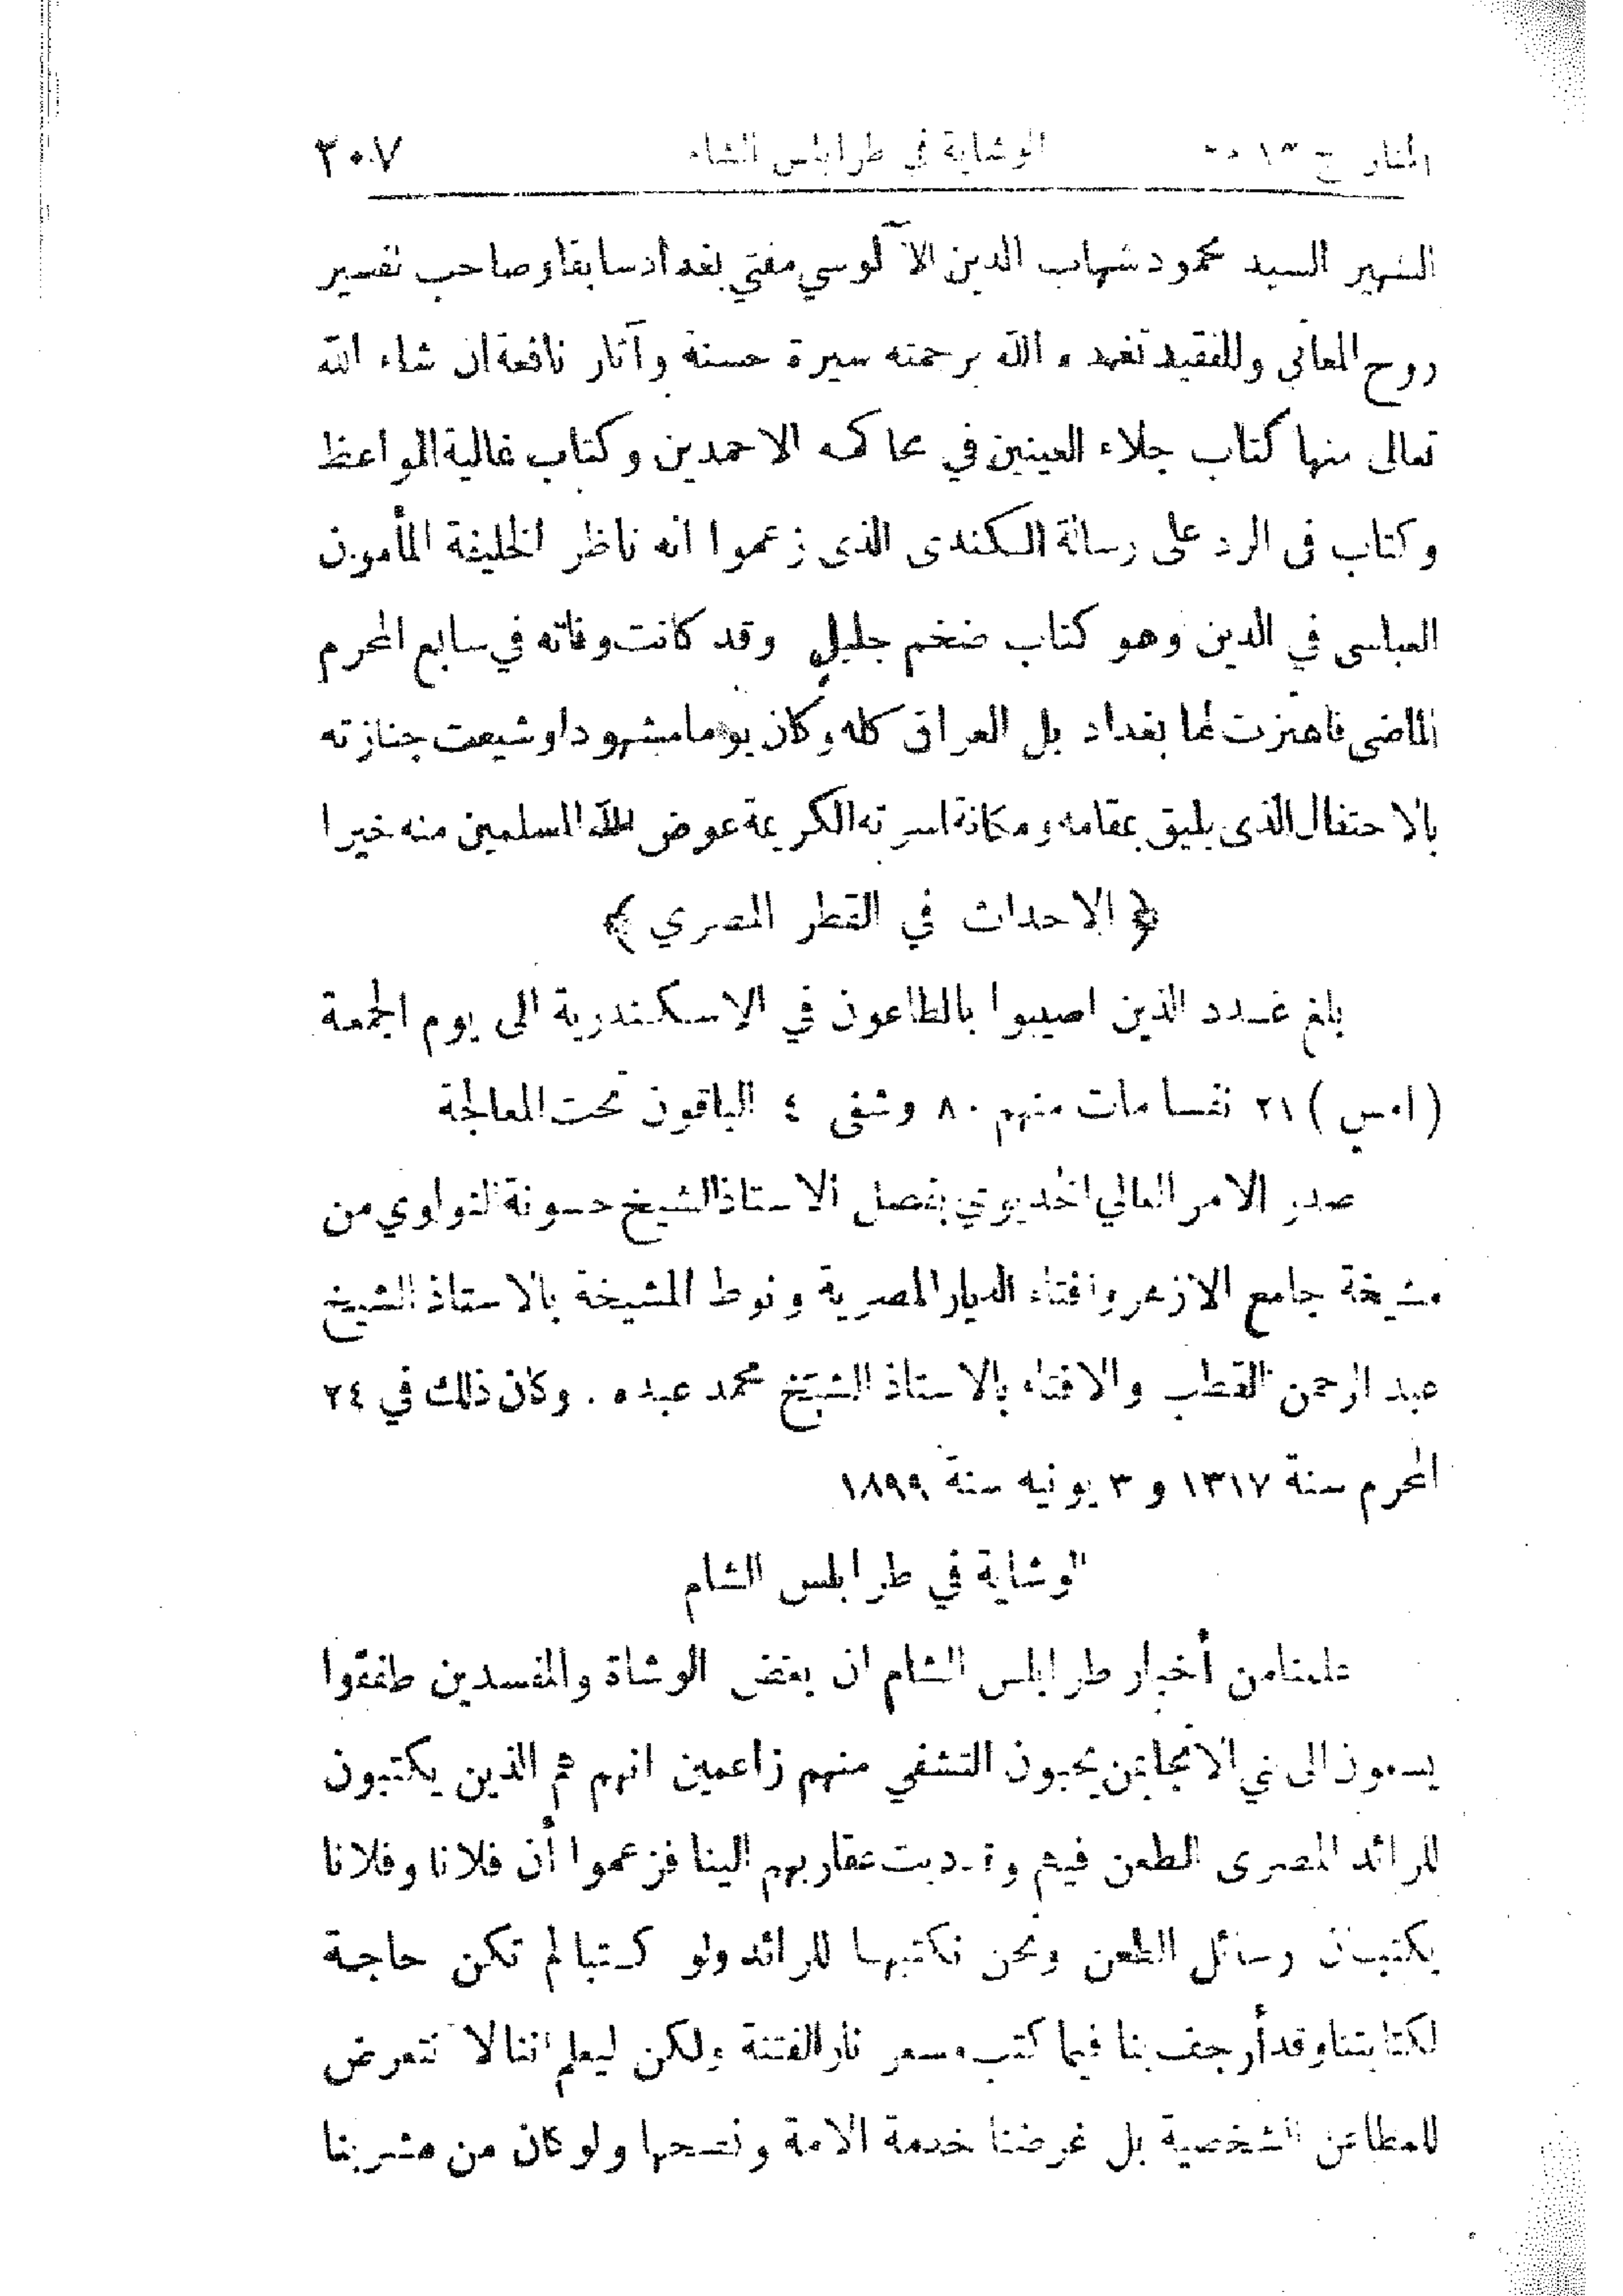 المنار ج ١٣ م ٢ الوشاية في طرابلس الشام ٢٠٧
الشهير السيد محمود شهاب الدين الآلوسي مفتي بغداد سابقا وصاحب تفسير
روح المعاني وللفقيد تغمده الله برحمته سيرة حسنة وآثار نافعة ان شاء الله
تعالى منها كتاب جلاء العينين في محاكمه الاحمدين وكتاب غالية المواعظ
وكتاب في الرد على رسالة الكندى الذى زعموا انه ناظر الخليفة المأمون
العباسى في الدين وهو كتاب ضخم جليل وقد كانت وفاته في سابع المحرم
الماضى فاهتزت لها بغداد بل العراق كله وكان يوما مشهودا وشيعت جنازته
بالاحتفال الذى يليق بمقامه ومكانة اسرته الكريمة عوض الله المسلمين منه خيرا
﴿ الاحداث في القطر المصري ﴾
بلغ عدد الذين اصيبوا بالطاعون في الاسكندرية الى يوم الجمعة
(امس) ٢١ نفسا مات منهم ٨٠ وشفى ٤ الباقون تحت المعالجة
صدر الامر العالي الخديوي بفصل الاستاذ الشيخ حسونة النواوي من
مشيخة جامع الازهر وافتاء الديار المصرية ونوط المشيخة بالاستاذ الشيخ
عبد الرحمن القطب والافتاء بالاستاذ الشيخ محمد عبده . وكان ذلك في ٢٤
المحرم سنة ١٣١٧ و ٣ يونيه سنة ١٨٩٩
الوشاية في طرابلس الشام
علمنا من أخبار طرابلس الشام ان بعض الوشاة والمفسدين طفقوا
يسعون الى ذي الانجابمن يحبون التشفي منهم زاعمين انهم هم الذين يكتبون
للرائد المصرى الطعن فيهم وقد دبت عقاربهم الينا فزعموا أن فلانا وفلانا
يكتبان رسائل الطعن ونحن نكتبها للرائد ولو كتبا لم تكن حاجة
لكتابتنا وقد أرجف بنا فيما كتب مسعر نار الفتنة ولكن ليعلم اننا لا نتعرض
للمطاعن الشخصية بل غرضنا خدمة الامة ونصحها ولو كان من مشربنا